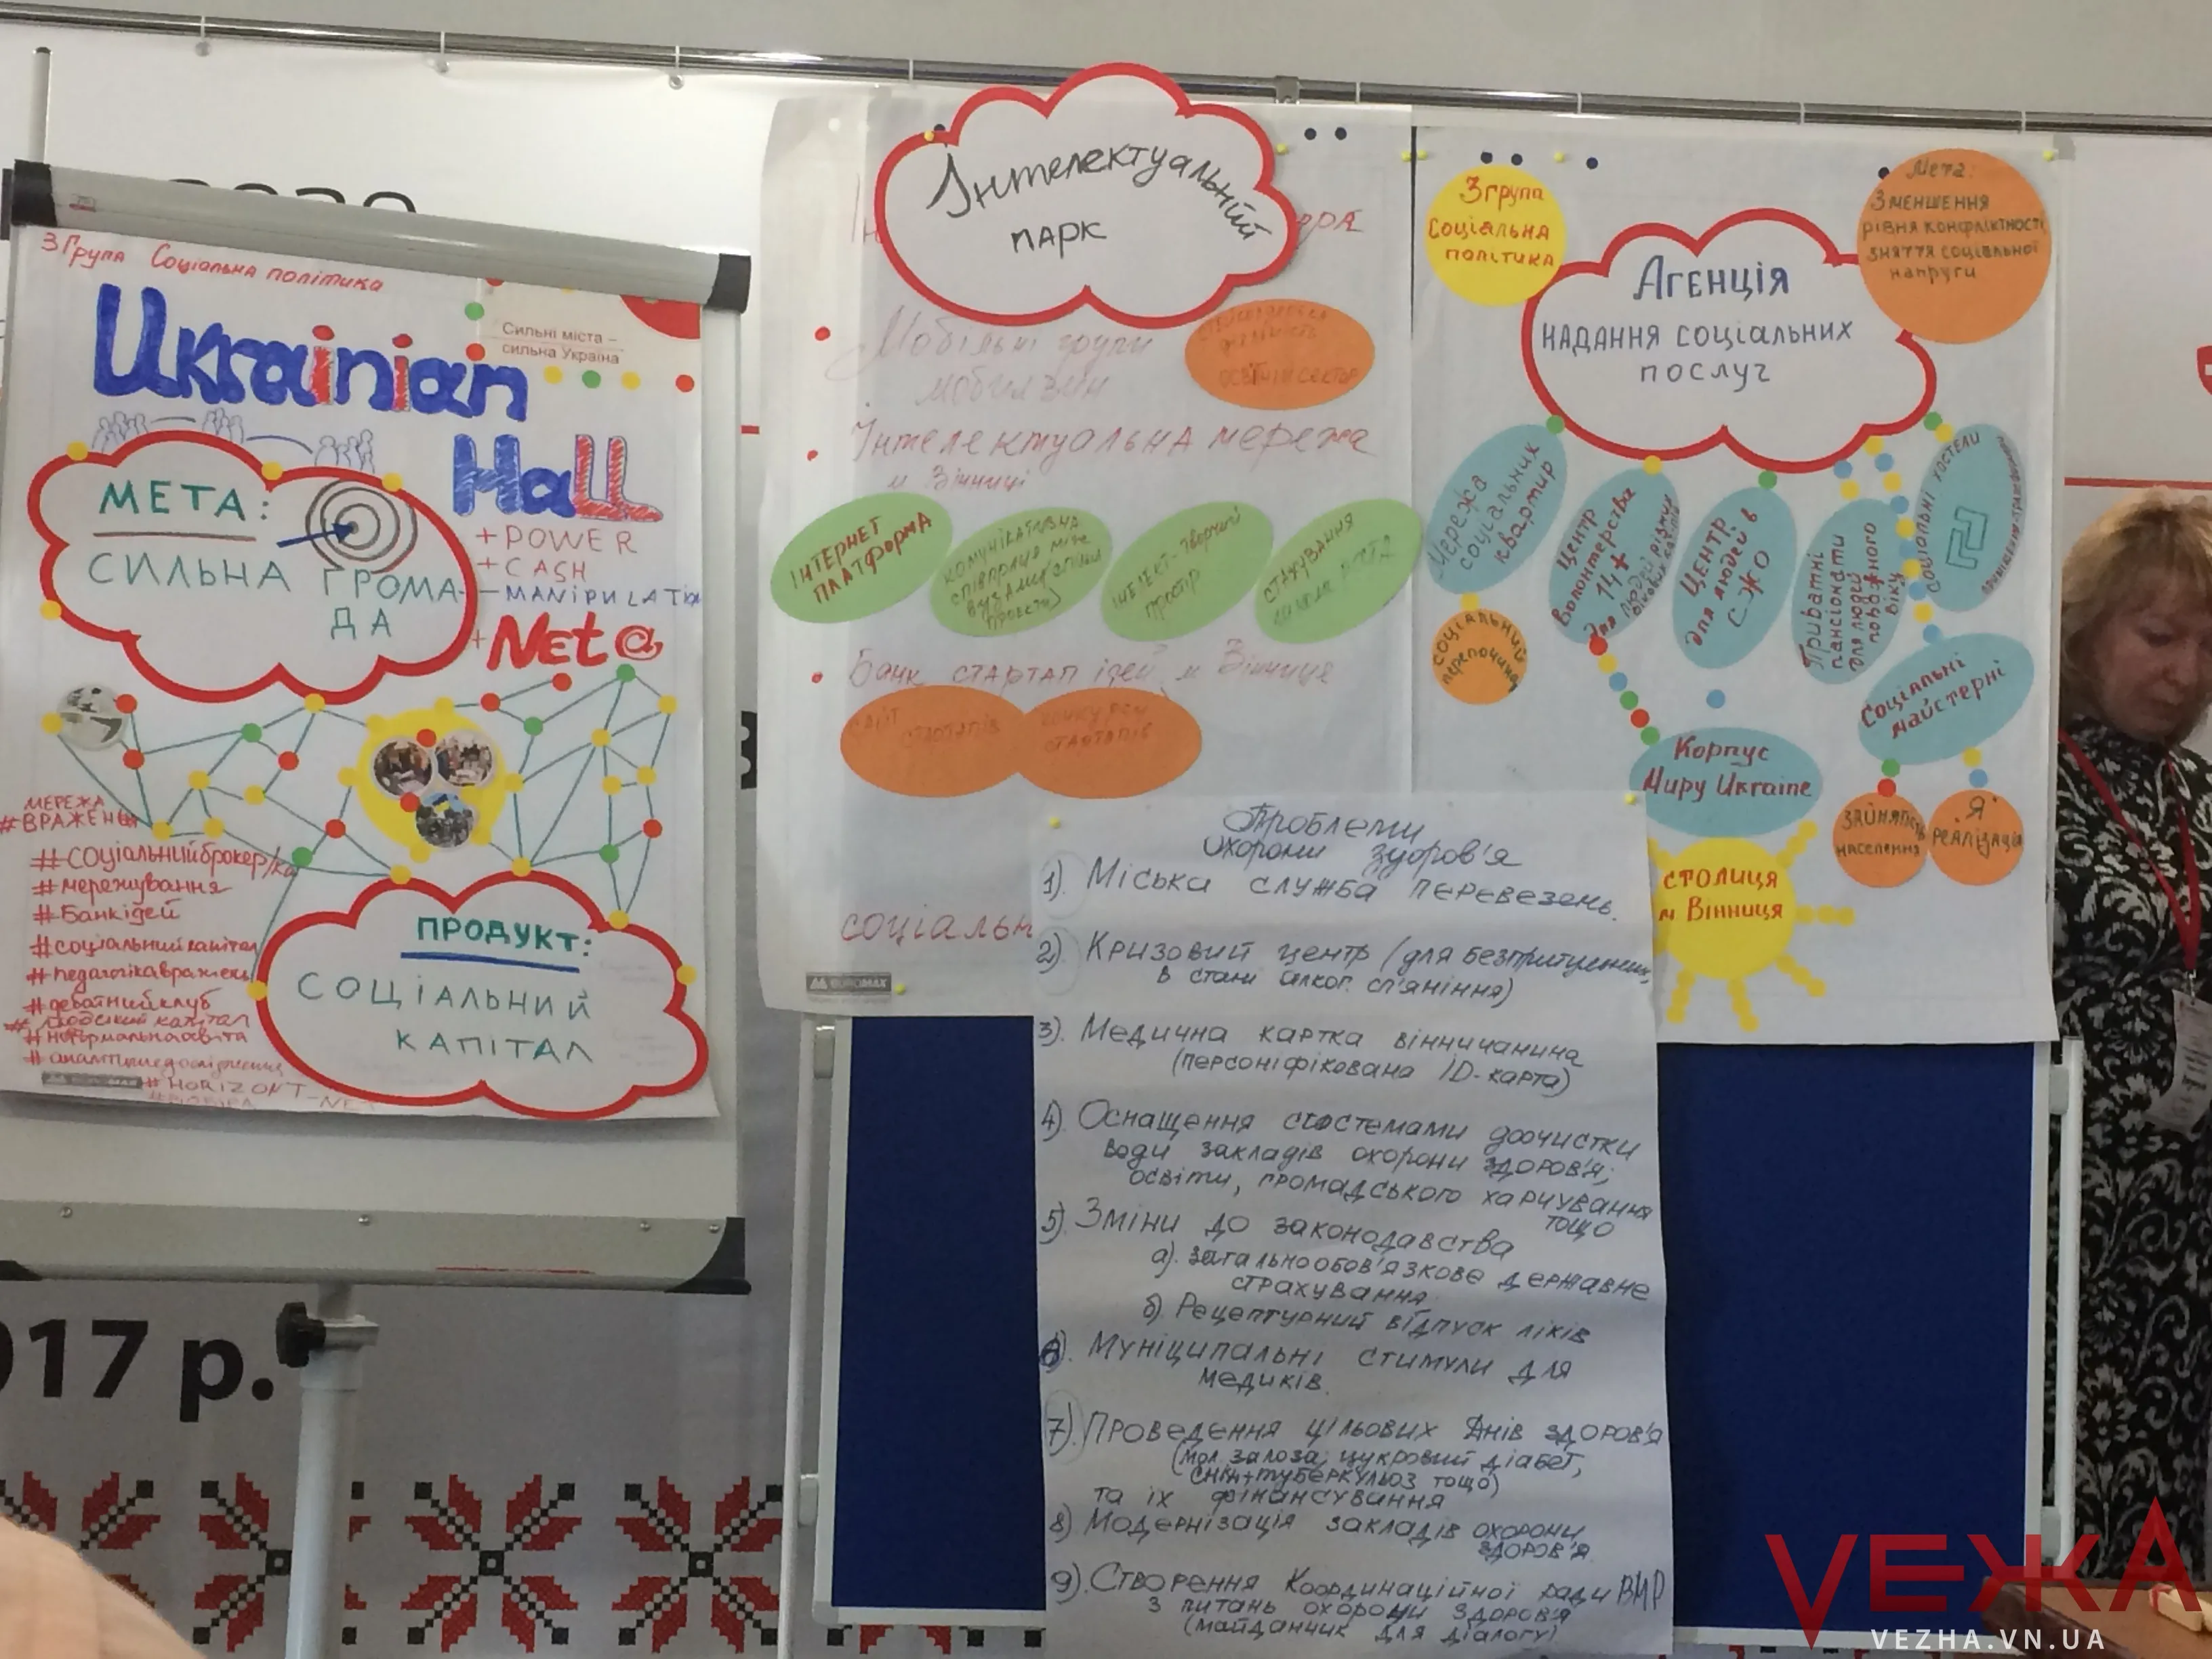 3 Група Соціальна політика
Ukrainian
Hall
Сильні міста –
сильна Україна
МЕТА:
СИЛЬНА ГРОМА-
ДА
+ POWER
+ CASH
– MANIPULATION
+ Net@
МЕРЕЖА
#ВРАЖЕНЬ
#соціальнийброкер/ка
#мережування
#Банкідей
#соціальнийкапітал
#педагогікавражень
#дебатнийклуб
#людський капітал
#неформальнаосвіта
#HORIZONT-NET
ПРОДУКТ:
СОЦІАЛЬНИЙ
КАПІТАЛ
017 р.
Інтелектуальний
парк
Мобільні групи
Інтелектуальна мережа
м Вінниці
ІНТЕРНЕТ
ПЛАТФОРМА
КОМУНІКАТИВНА
СПІВПРАЦЯ МІЖ
ІНТЕЛЕКТ-ТВОРЧИЙ
ПРОСТІР
СТАЖУВАННЯ
Банк стартап ідей м Вінниця
САЙТ
СТАРТАПІВ
КОНКУРСИ
СТАРТАПІВ
соціальн
EUROMAX
3 група
Соціальна
політика
Мета:
Зменшення
рівня конфліктності
зняття соціальної
напруги
Агенція
надання соціальних
послуг
Мережа
соціальних
квартир
Соціальний
перепочинок
Центр
Волонтерства
14+
для людей різних
вікових категорій
Центр
для людей в
СЖО
Приватні
пансіонати
для людей
поважного
віку
Соціальні хостели
Соціальні
майстерні
Корпус
Миру Ukraine
Зайнятість
населення
Я
реалізація
СТОЛИЦЯ
м Вінниця
Проблеми
охорони здоров'я
1). Міська служба перевезень.
2). Кризовий центр (для безпритульних,
в стані алког. сп'яніння)
3). Медична картка вінничанина
(персоніфікована ID-карта)
4). Оснащення системами доочистки
води закладів охорони здоров'я;
освіти, громадського харчування
тощо
5). Зміни до законодавства
а). загальнообов'язкове державне
страхування
б). Рецептурний відпуск ліків
6). Муніципальні стимули для
медиків.
7). Проведення цільових Днів здоров'я
(мол. залоза, цукровий діабет,
СНІД+туберкульоз тощо)
та їх фінансування
8). Модернізація закладів охорони
здоров'я
9). Створення Координаційної ради ВМР
з питань охорони здоров'я
(майданчик для діалогу)
VEЖА
VEZHA.VN.UA